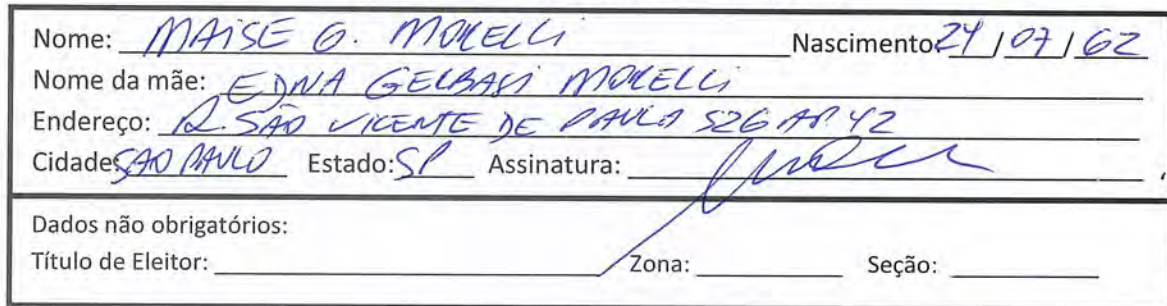 Nome: MAISE G. MORELLi Nascimento: 24 / 07 / 62
Nome da mãe: EDNA GERBASi MORELLi
Endereço: R. SÃO VICENTE DE PAULO 526 AP. 42
Cidade: SAO PAULO Estado: SP Assinatura:
Dados não obrigatórios:
Título de Eleitor: Zona: Seção: